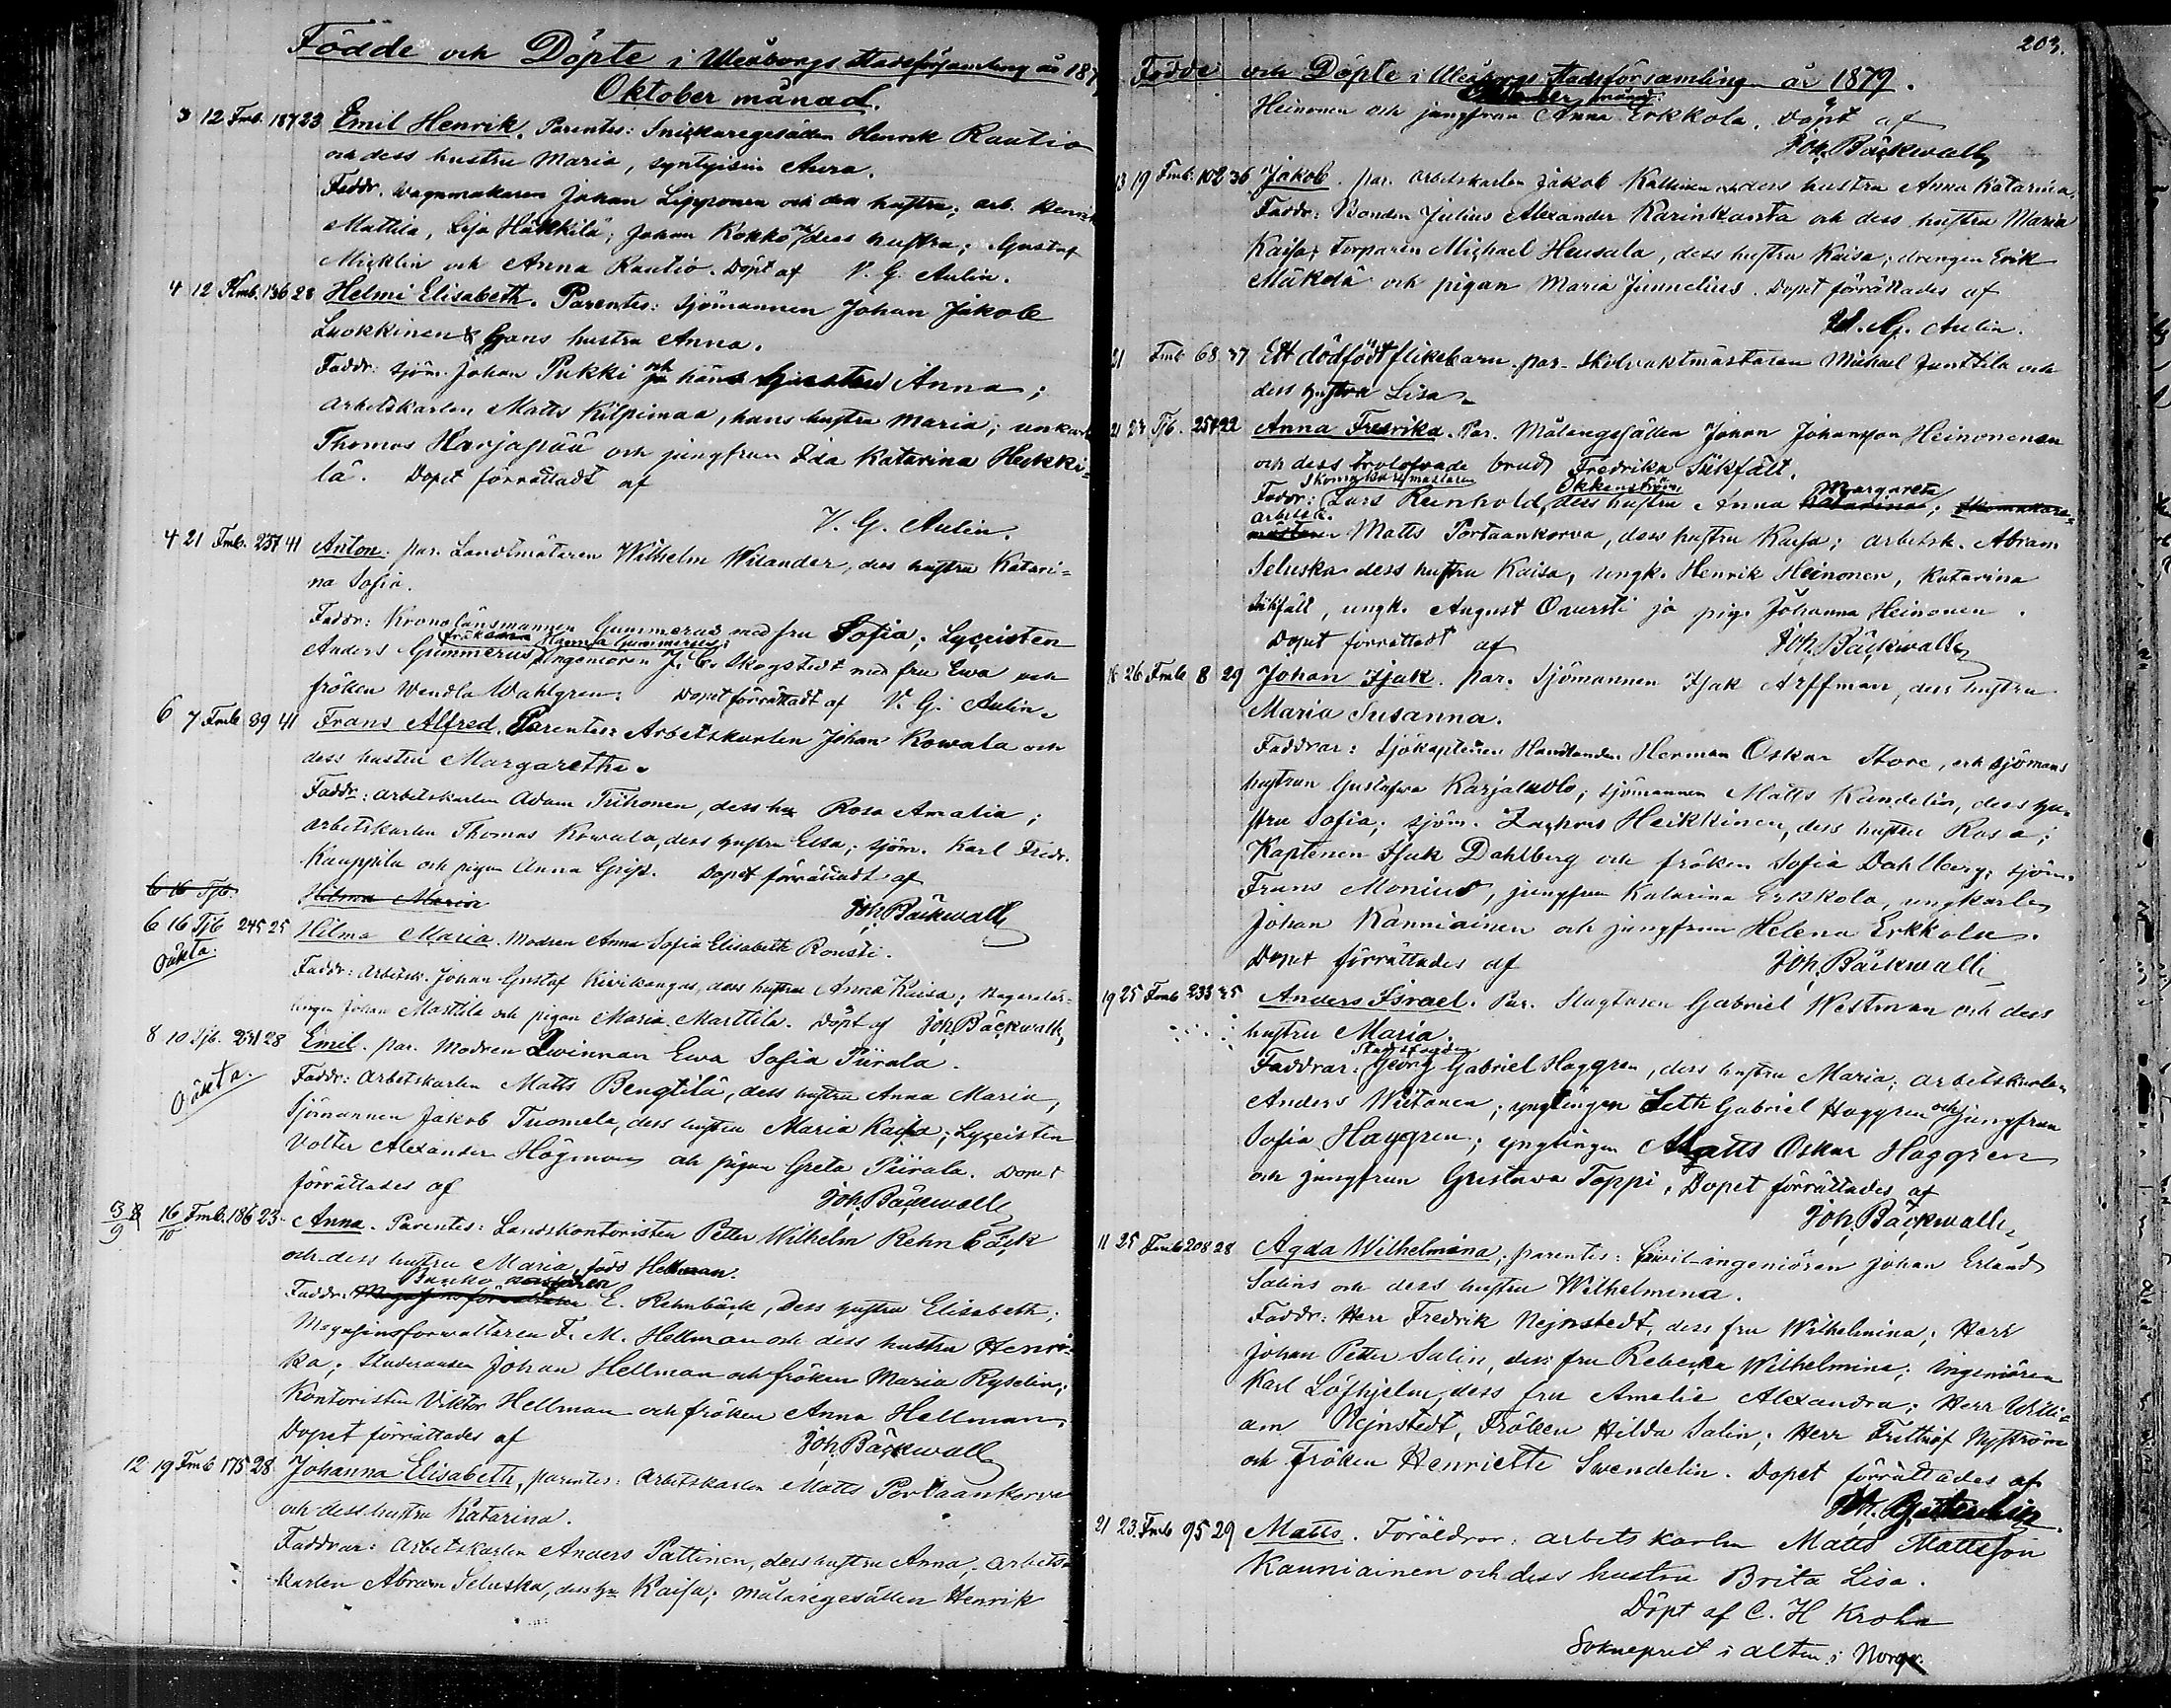 Födde och Döpte i Uleåborgs stadsförsamling år 187
Oktober månad.
3 12 Fmb. 187 23 Emil Henrik. Parentes: Snickaregesällen Henrik Rautio
och dess hustru Maria, syntyisin Aura.
Faddr. Wagnmakaren Johan Lipponen och dess hustru; arb. Henrik
Mattila, Lisa Häkkilä; Johan Kokko och dess hustru; Gustaf
Micklin och Anna Rautio. Döpt af V. G. Aulin.
4 12 Fmb. 136 28 Helmi Elisabeth. Parentes: Sjömannen Johan Jakob
Luokkinen & hans hustru Anna.
Faddr: sjöm. Johan Pukki och hans hustru Anna;
Arbetskarlen Matts Kilpimaa, hans hustru Maria; unkarl
Thomas Harjapää och jungfrun Ida Katarina Heikki=
lä. Dopet förrättadt af
V. G. Aulin.
4 21 Fmb. 237 41 Anton. par. Landtmätaren Wilhelm Wilander, dess hustru Katari=
na Sofia.
Faddr: Kronolänsmannen Gummerus med fru Sofia; Lyceisten
Anders Gummerus, fröken Hanna Gummerus; Ingeniören J. C. Skogstedt med fru Ewa och
fröken Wendla Wahlgren. Dopet förrättadt af V. G. Aulin.
6 7 Fmb 89 41 Frans Alfred. Parentes: Arbetskarlen Johan Kowala och
dess hustru Margaretha.
Faddr: arbetskarlen Adam Trihonen, dess hu Rosa Amalia;
arbetskarlen Thomas Kowala, dess hustru Elsa; sjöm. Karl Fredr.
Kauppila och pigan Anna. Dopet förrättadt af
Joh. Bäckwall
6 16 Tjb. Hilma Maria
6 16 Tjb 245 25 Hilma Maria. Modren Anna Sofia Elisabeth Rousti.
Oäkta.
Faddr: Arbetsk. Johan Gustaf Kivikangas, dess hustru Anna Kaisa;
Johan Marttila och pigan Maria Marttila. Döpt af Joh. Bäckwall
8 10 Tjb. 231 28 Emil. par. Modren Qwinnan Ewa Sofia Piirala.
Oäkta.
Faddr: Arbetskarlen Matts Bengtilä, dess hustru Anna Maria,
Sjömannen Jakob Tuomela, dess hustru Maria Kaisa; Lyceisten
Volter Alexander Högman och pigan Greta Piirala. Dopet
förrättades af
Joh. Bäckwall
3/9 8 16/10 Fmb. 186 23 Anna. Parentes: Landskontoristen Petter Wilhelm Rehnbäck
och dess hustru Maria född Hellman.
Faddr. E. Rehnbäck, Dess hustru Elisabeth;
Magasinsforwaltaren F. M. Hellman och dess hustru Henri=
ka; Studeranden Johan Hellman och fröken Maria Ryselin;
Kontoristen Viktor Hellman och fröken Anna Hellman.
Dopet förrättades af
Joh. Bäckwall
12 19 Fmb 175 28 Johanna Elisabeth, parentes: Arbetskarlen Matts Portaankorva
och dess hustru Katarina.
Faddrar: Arbetskarlen Anders Pattinen, dess hustru Anna; arbets=
karlen Abram Seluska, dess hu Kaisa; målaregesällen Henrik
203.
Födde och Döpte i Uleåborgs stadsförsamling år 1879.
Oktober månad.
Heinonen och jungfrun Anna Erkkola. Döpt af
Joh. Bäckwall
13 19 Fmb. 102 36 Jakob. par. Arbetskarlen Jakob Kallinen och dess hustru Anna Katarina.
Faddr: Bonden Julius Alexander Karinkanta och dess hustru Maria
Kaisa; Torparen Michael Heusala, dess hustru Kaisa; drengen Erik
Mäkelä och pigan Maria Junnelius. Dopet förrättades af
V. G. Aulin.
21 Fmb 68 37 Ett dödfödt flikebarn. par. Skolvaktmästaren Mikael Junttila och
dess hustru Lisa.
21 23 Tjb. 257 22 Anna Fredrika. Par. Målaregesällen Johan Johansson Heinonenen
och dess trolofvade brud Fredrika Sükfält.
Faddr: Skomakaremästaren Lars Reinhold Okkenström, dess hustru Anna Margareta; skomakare=
arbetsk.
mästaren Matts Portaankorva, dess hustru Kaisa; arbetsk. Abram
Seluska dess hustru Kaisa, ungk. Henrik Heinonen, Katarina
Sükfält, ungk. August Oversti ja pig. Johanna Heinonen.
Dopet förrättadt af Joh. Bäckwall
16 26 Fmb 8 29 Johan Isak. Par. Sjömannen Isak Arffman, dess hustru
Maria Susanna.
Faddrar: Sjökaptenen Handlanden Herman Oskar Store, och sjömans
hustrun Gustafva Karjaluoto; sjömannen Matts Kandelin, dess hu=
stru Sofia; sjöm. Zachris Heikkinen, dess hustru Rosa;
Kaptenen Isak Dahlberg och fröken Sofia Dahlberg; sjöm.
Frans Monius, jungfrun Katarina Erkkola, ungkarlen
Johan Kanniainen och jungfrun Helena Erkkola.
Dopet förrättades af Joh. Bäckwall
19 25 Fmb 233 35 Anders Israel. Par. Slagtaren Gabriel Westman och dess
hustru Maria.
Faddrar: Stadsfogden Georg Gabriel Haggren, dess hustru Maria; arbetskarlen
Anders Wiitanen; ynglingen Seth Gabriel Haggren och jungfrun
Sofia Haggren; ynglingen Matts Oskar Haggren
och jungfrun Gustava Toppi. Dopet förrättades af
Joh. Bäckwall
11 25 Fmb 208 28 Agda Wilhelmina, parentes: Civil-ingeniören Johan Erland
Salins och dess hustru Wilhelmina.
Faddr: Herr Fredrik Nejnstedt, dess fru Wilhelmina; Herr
Johan Petter Salin, dess fru Rebecka Wilhelmina; Ingeniören
Karl Löfhjelm, dess fru Amelie Alexandra; Herr Willi=
am Nejnstedt, Fröken Hilda Salin; Herr Frithiof Nyström
och Fröken Henriette Swendelin. Dopet förrättades af
21 23 Fmb 95 29 Matts. Föräldrar: arbetskarlen Matts Mattsson
Kanniainen och dess hustru Brita Lisa.
Döpt af C. H Krohn
Sokneprest i Alten i Norge.